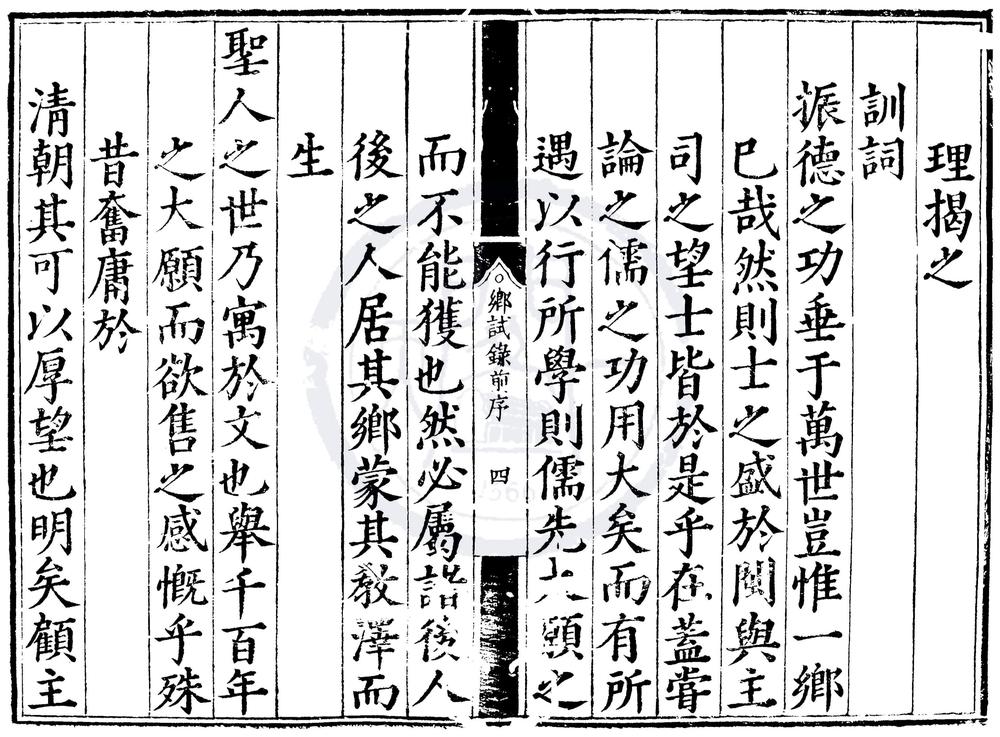 理揭之
訓詞
振德之功垂于萬世豈惟一鄉
已哉然則士之盛於閩與主
司之望士皆於是乎在蓋嘗
論之儒之功用大矣而有所
遇以行所學則儒先大願之
鄉試錄前序 四
而不能獲也然必屬諸後人
後之人居其鄉蒙其教澤而
生
聖人之世乃寓於文也舉千百年
之大願而欲售之感慨乎殊
昔奮庸於
清朝其可以厚望也明矣顧主